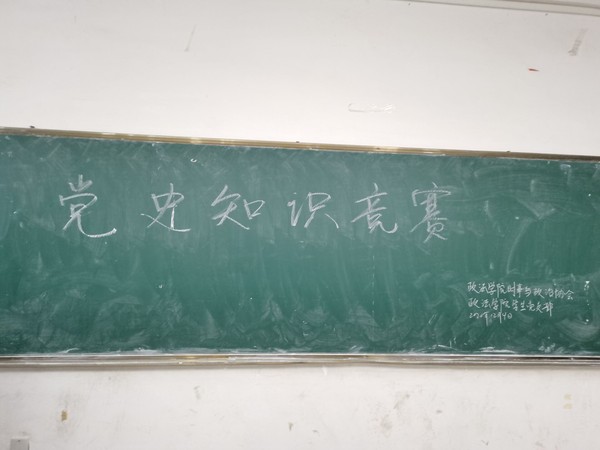 党史知识竞赛
政法学院时事与政治协会
政法学院学生党支部